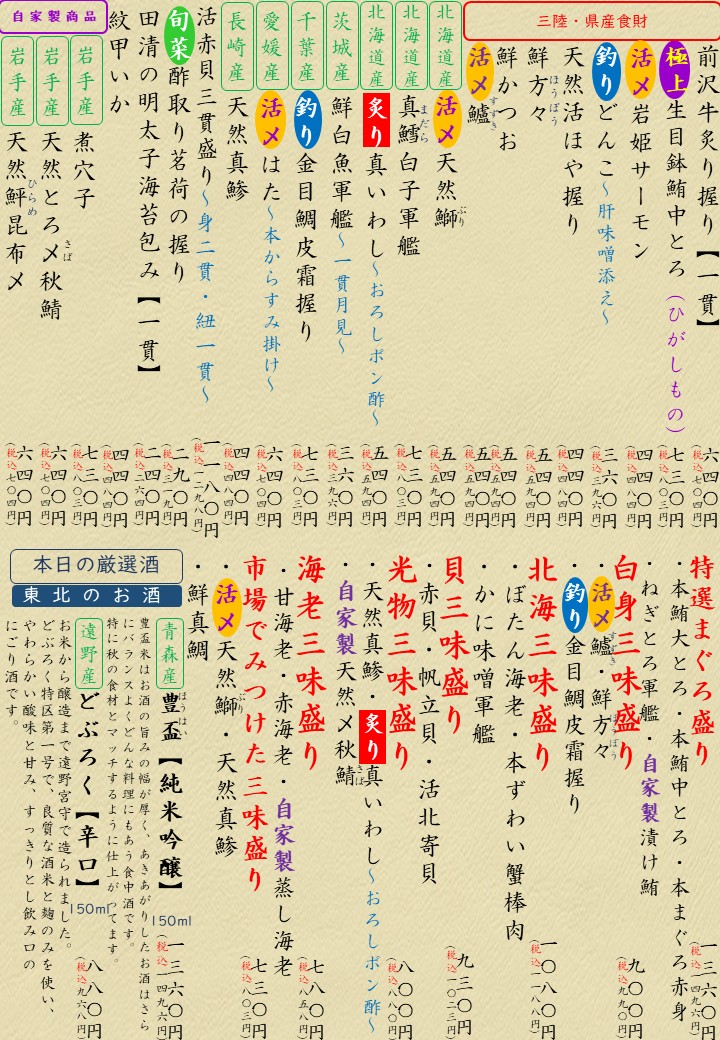 三陸・県産食財
前沢牛炙り握り【一貫】 六四〇円 (税込七〇四円)
極上 生目鉢鮪中とろ(ひがしもの) 七三〇円 (税込八〇三円)
活〆 岩姫サーモン 四四〇円 (税込四八四円)
釣り どんこ～肝味噌添え～ 三六〇円 (税込三九六円)
天然活ほや握り 四四〇円 (税込四八四円)
鮮方々 ほうぼう 五四〇円 (税込五九四円)
鮮かつお 五四〇円 (税込五九四円)
活〆 鱸 すずき 五四〇円 (税込五九四円)
北海道産 活〆 天然鰤 ぶり 五四〇円 (税込五九四円)
北海道産 真鱈白子軍艦 まだら 七三〇円 (税込八〇三円)
北海道産 炙り 真いわし～おろしポン酢～ 五四〇円 (税込五九四円)
茨城産 鮮白魚軍艦～一貫月見～ 三六〇円 (税込三九六円)
千葉産 釣り 金目鯛皮霜握り 七三〇円 (税込八〇三円)
愛媛産 活〆 はた～本からすみ掛け～ 六四〇円 (税込七〇四円)
長崎産 天然真鯵 四四〇円 (税込四八四円)
活赤貝三貫盛り～身二貫・紐一貫～ 一一八〇円 (税込一二九八円)
旬菜 酢取り茗荷の握り 二九〇円 (税込三一九円)
田清の明太子海苔包み【一貫】 二四〇円 (税込二六四円)
紋甲いか 四四〇円 (税込四八四円)
自家製商品
岩手産 煮穴子 七三〇円 (税込八〇三円)
岩手産 天然とろ〆秋鯖 さば 六四〇円 (税込七〇四円)
岩手産 天然鮃昆布〆 ひらめ 六四〇円 (税込七〇四円)
特選まぐろ盛り
・本鮪大とろ・本鮪中とろ・本まぐろ赤身 一三六〇円 (税込一四九六円)
・ねぎとろ軍艦・自家製漬け鮪
白身三味盛り
・活〆鱸 すずき・鮮方々 ほうぼう 九〇〇円 (税込九九〇円)
釣り金目鯛皮霜握り
北海三味盛り
・ぼたん海老・本ずわい蟹棒肉 一〇八〇円 (税込一一八八円)
・かに味噌軍艦
貝三味盛り
・赤貝・帆立貝・活北寄貝 九三〇円 (税込一〇二三円)
光物三味盛り
・天然真鯵・炙り真いわし～おろしポン酢～ 八〇〇円 (税込八八〇円)
・自家製天然〆秋鯖 さば
海老三味盛り
・甘海老・赤海老・自家製蒸し海老 七八〇円 (税込八五八円)
市場でみつけた三味盛り
・活〆天然鰤 ぶり・天然真鯵 七三〇円 (税込八〇三円)
・鮮真鯛
本日の厳選酒
東北のお酒
青森産 豊盃 ほうはい【純米吟醸】 150ml 一三六〇円 (税込一四九六円)
豊盃米はお酒の旨みの幅が厚く、あきあがりしたお酒はさら
にバランスよくどんな料理にもあう食中酒です。
特に秋の食材とマッチするように仕上がってます。
遠野産 どぶろく【辛口】 150ml 八八〇円 (税込九六八円)
お米から醸造まで遠野宮守で造られました。
どぶろく特区第一号で、良質な酒米と麹のみを使い、
やわらかい酸味と甘み、すっきりとし飲み口の
にごり酒です。